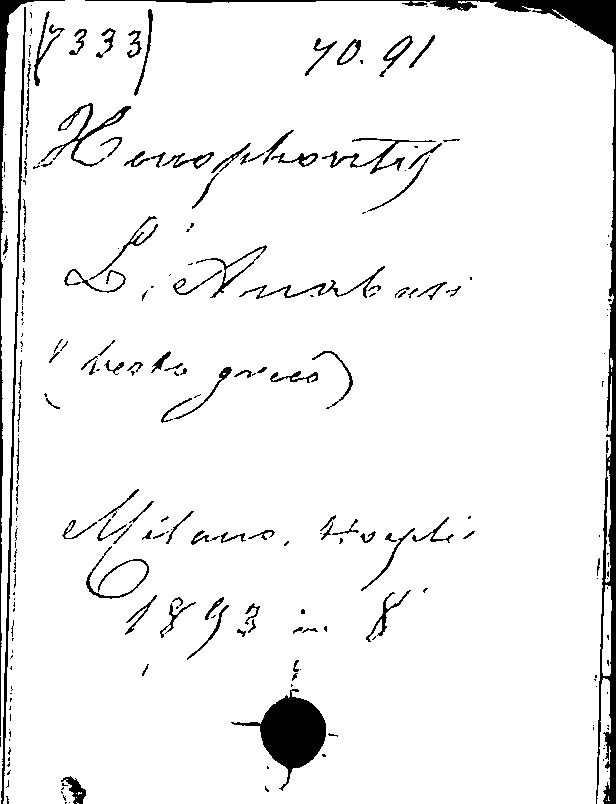 (7333) 70.91
Xenophontis
L'Anabasi
(testo greco)
Milano, Hoepli
1893 in 8°